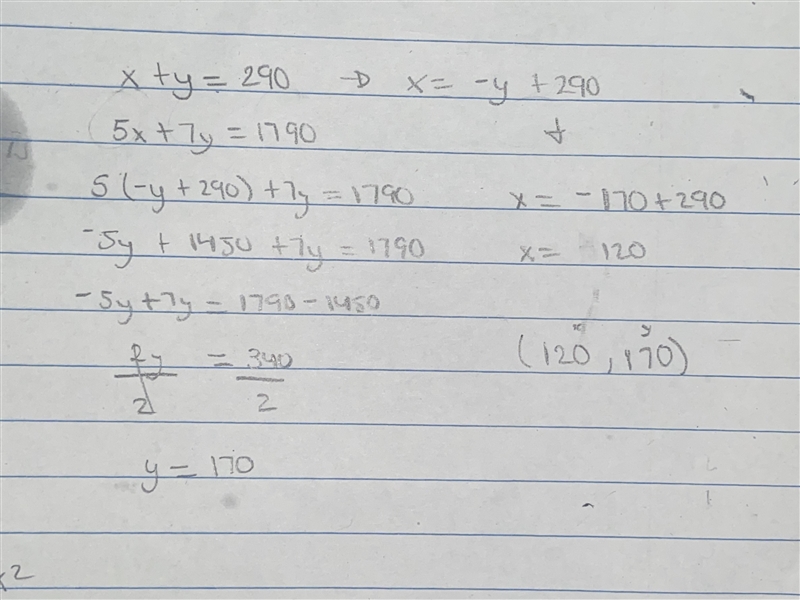 x + y = 290 → x = -y + 290
5x + 7y = 1790 ↓
5(-y + 290) + 7y = 1790 x = -170 + 290
-5y + 1450 + 7y = 1790 x = 120
-5y + 7y = 1790 - 1450
2y/2 = 340/2 (120, 170)
x y
y = 170